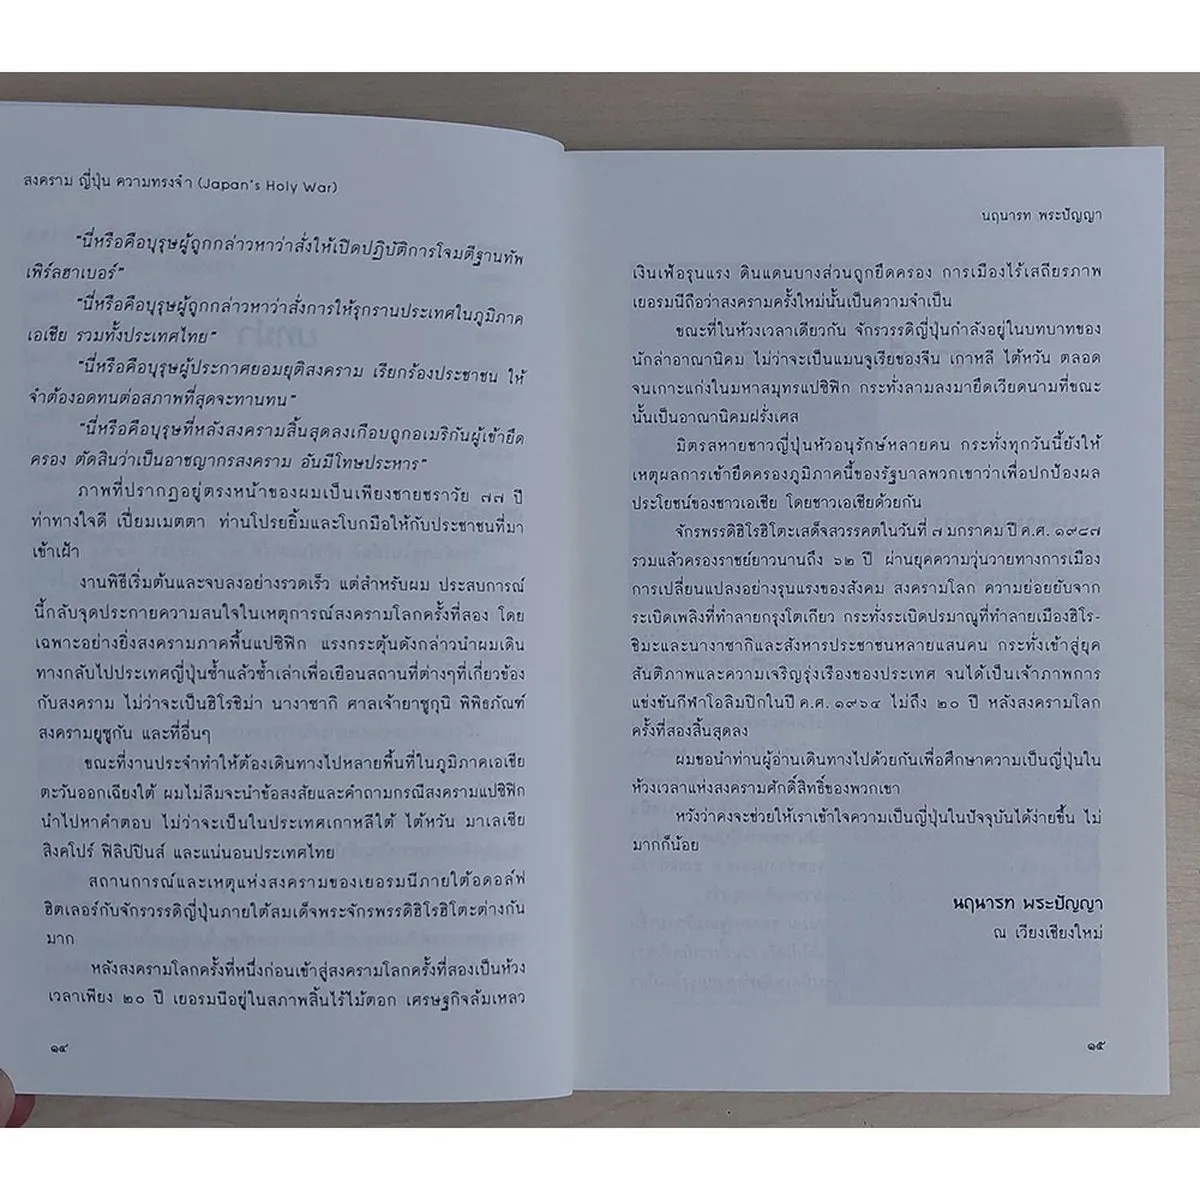 สงคราม ญี่ปุ่น ความทรงจำ (Japan's Holy War)
"นี่หรือคือบุรุษผู้ถูกกล่าวหาว่าสั่งให้เปิดปฏิบัติการโจมตีฐานทัพ
เพิร์ลฮาเบอร์"
"นี่หรือคือบุรุษผู้ถูกกล่าวหาว่าสั่งการให้รุกรานประเทศในภูมิภาค
เอเชีย รวมทั้งประเทศไทย"
"นี่หรือคือบุรุษผู้ประกาศยอมยุติสงคราม เรียกร้องประชาชน ให้
จำต้องอดทนต่อสภาพที่สุดจะทานทน"
"นี่หรือคือบุรุษที่หลังสงครามสิ้นสุดลงเกือบถูกอเมริกันผู้เข้ายึด
ครอง ตัดสินว่าเป็นอาชญากรสงคราม อันมีโทษประหาร"
ภาพที่ปรากฏอยู่ตรงหน้าของผมเป็นเพียงชายชราวัย ๗๗ ปี
ท่าทางใจดี เปี่ยมเมตตา ท่านโปรยยิ้มและโบกมือให้กับประชาชนที่มา
เข้าเฝ้า
งานพิธีเริ่มต้นและจบลงอย่างรวดเร็ว แต่สำหรับผม ประสบการณ์
นี้กลับจุดประกายความสนใจในเหตุการณ์สงครามโลกครั้งที่สอง โดย
เฉพาะอย่างยิ่งสงครามภาคพื้นแปซิฟิก แรงกระตุ้นดังกล่าวนำผมเดิน
ทางกลับไปประเทศญี่ปุ่นซ้ำแล้วซ้ำเล่าเพื่อเยือนสถานที่ต่างๆที่เกี่ยวข้อง
กับสงคราม ไม่ว่าจะเป็นฮิโรชิม่า นางาซากิ ศาลเจ้ายาซูกุนิ พิพิธภัณฑ์
สงครามยูชูกัน และที่อื่นๆ
ขณะที่งานประจำทำให้ต้องเดินทางไปหลายพื้นที่ในภูมิภาคเอเชีย
ตะวันออกเฉียงใต้ ผมไม่ลืมจะนำข้อสงสัยและคำถามกรณีสงครามแปซิฟิก
นำไปหาคำตอบ ไม่ว่าจะเป็นในประเทศเกาหลีใต้ ไต้หวัน มาเลเซีย
สิงคโปร์ ฟิลิปปินส์ และแน่นอนประเทศไทย
สถานการณ์และเหตุแห่งสงครามของเยอรมนีภายใต้อดอล์ฟ
ฮิตเลอร์กับจักรวรรดิญี่ปุ่นภายใต้สมเด็จพระจักรพรรดิฮิโรฮิโตะต่างกัน
มาก
หลังสงครามโลกครั้งที่หนึ่งก่อนเข้าสู่สงครามโลกครั้งที่สองเป็นห้วง
เวลาเพียง ๒๐ ปี เยอรมนีอยู่ในสภาพสิ้นไร้ไม้ตอก เศรษฐกิจล้มเหลว
๑๔
นฤนารท พระปัญญา
เงินเฟ้อรุนแรง ดินแดนบางส่วนถูกยึดครอง การเมืองไร้เสถียรภาพ
เยอรมนีถือว่าสงครามครั้งใหม่นั้นเป็นความจำเป็น
ขณะที่ในห้วงเวลาเดียวกัน จักรวรรดิญี่ปุ่นกำลังอยู่ในบทบาทของ
นักล่าอาณานิคม ไม่ว่าจะเป็นแมนจูเรียของจีน เกาหลี ไต้หวัน ตลอด
จนเกาะแก่งในมหาสมุทรแปซิฟิก กระทั่งลามลงมายึดเวียดนามที่ขณะ
นั้นเป็นอาณานิคมฝรั่งเศส
มิตรสหายชาวญี่ปุ่นหัวอนุรักษ์หลายคน กระทั่งทุกวันนี้ยังให้
เหตุผลการเข้ายึดครองภูมิภาคนี้ของรัฐบาลพวกเขาว่าเพื่อปกป้องผล
ประโยชน์ของชาวเอเชีย โดยชาวเอเชียด้วยกัน
จักรพรรดิฮิโรฮิโตะเสด็จสวรรคตในวันที่ ๗ มกราคม ปี ค.ศ. ๑๙๘๗
รวมแล้วครองราชย์ยาวนานถึง ๖๒ ปี ผ่านยุคความวุ่นวายทางการเมือง
การเปลี่ยนแปลงอย่างรุนแรงของสังคม สงครามโลก ความย่อยยับจาก
ระเบิดเพลิงที่ทำลายกรุงโตเกียว กระทั่งระเบิดปรมาณูที่ทำลายเมืองฮิโร-
ชิมะและนางาซากิและสังหารประชาชนหลายแสนคน กระทั่งเข้าสู่ยุค
สันติภาพและความเจริญรุ่งเรืองของประเทศ จนได้เป็นเจ้าภาพการ
แข่งขันกีฬาโอลิมปิกในปี ค.ศ. ๑๙๖๔ ไม่ถึง ๒๐ ปี หลังสงครามโลก
ครั้งที่สองสิ้นสุดลง
ผมขอนำท่านผู้อ่านเดินทางไปด้วยกันเพื่อศึกษาความเป็นญี่ปุ่นใน
ห้วงเวลาแห่งสงครามศักดิ์สิทธิ์ของพวกเขา
หวังว่าคงจะช่วยให้เราเข้าใจความเป็นญี่ปุ่นในปัจจุบันได้ง่ายขึ้น ไม่
มากก็น้อย
นฤนารท พระปัญญา
ณ เวียงเชียงใหม่
๑๕